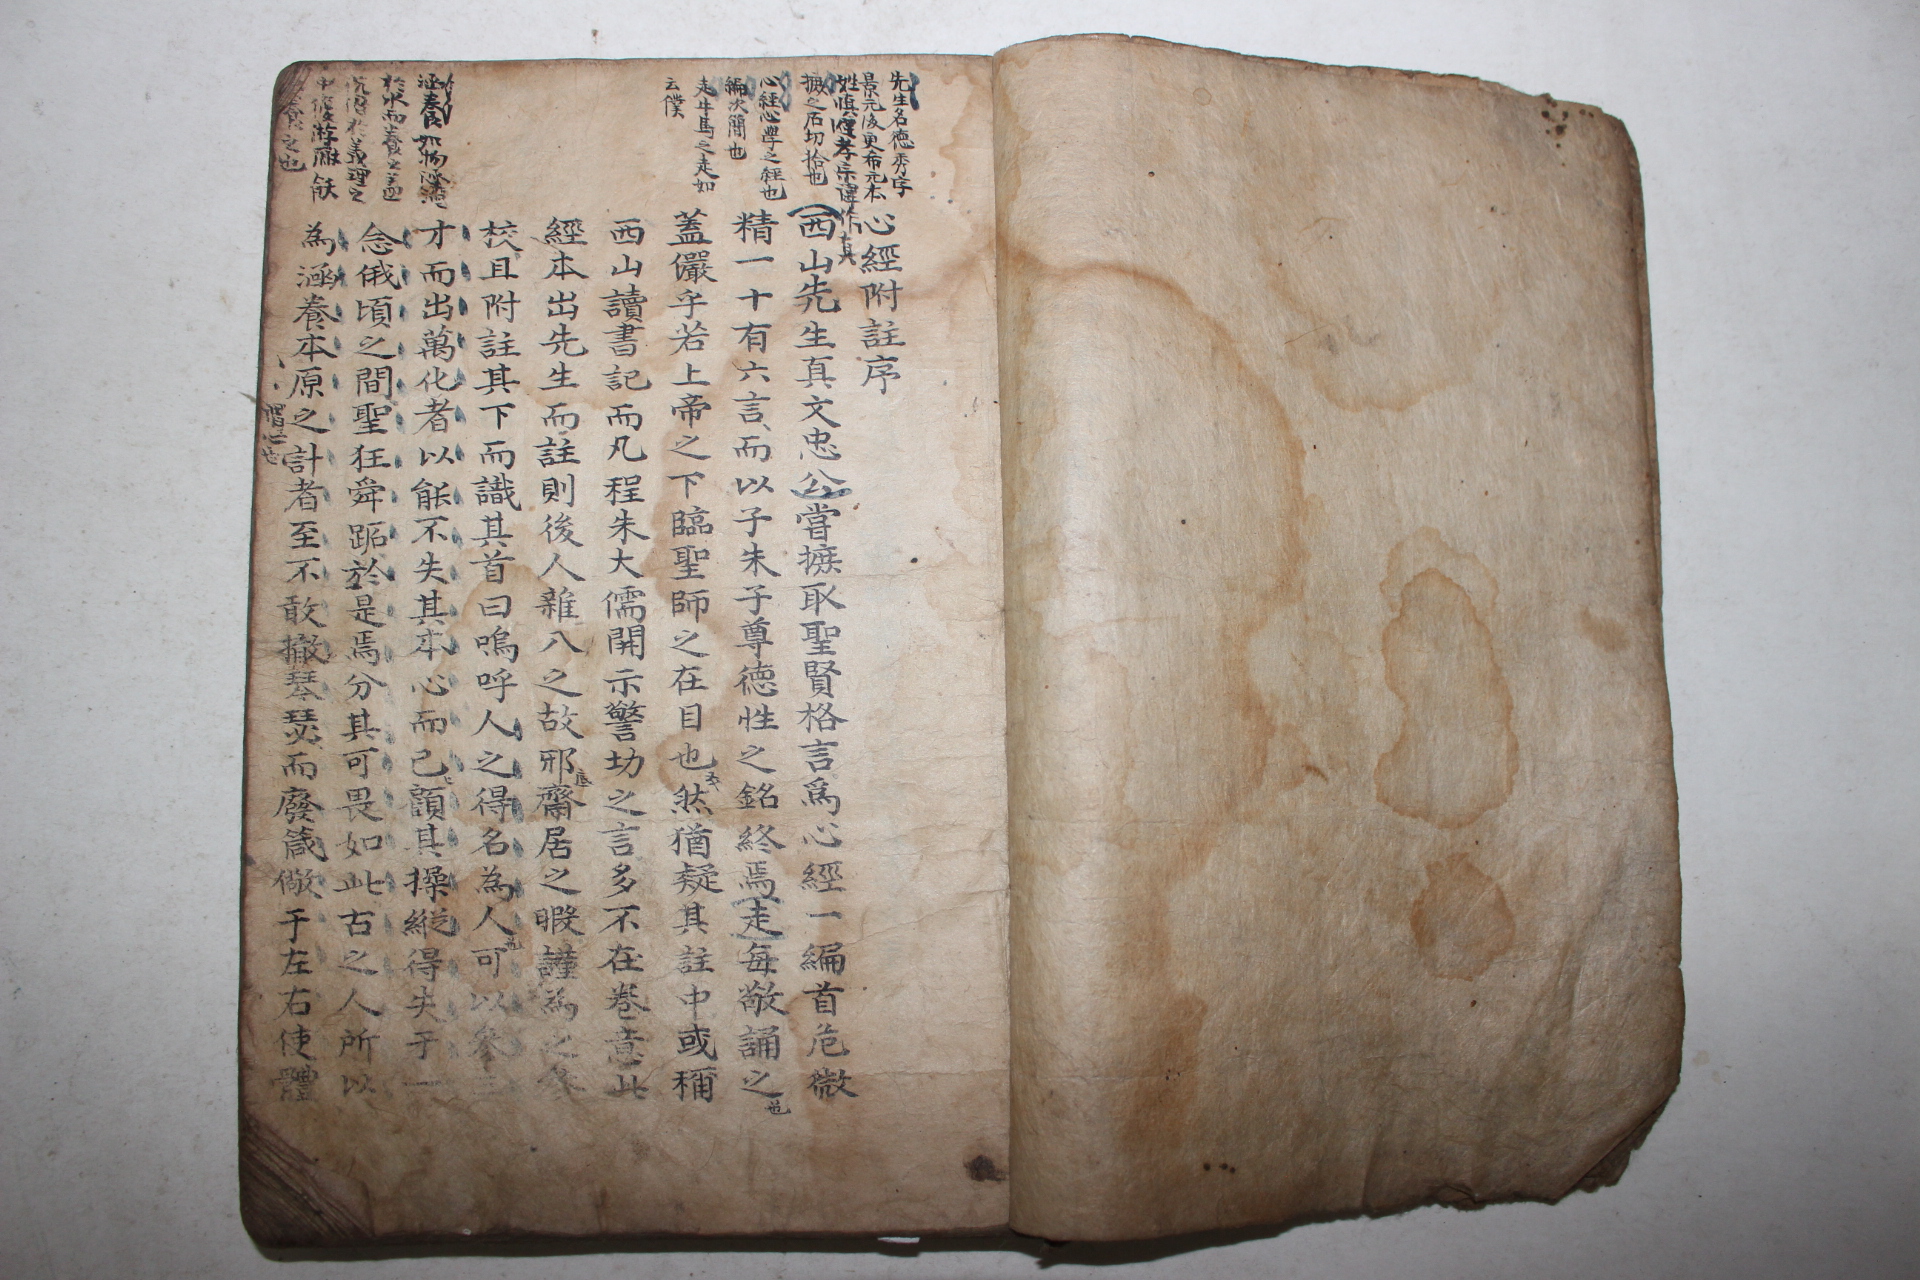 心經附註序
西山先生真文忠公嘗摭取聖賢格言爲心經一編首危微
精一十有六言而以子朱子尊德性之銘終焉走每敬誦之
蓋儼乎若上帝之下臨聖師之在目也然猶疑其註中或稱
西山讀書記而凡程朱大儒開示警切之言多不在卷意此
經本出先生而註則後人雜入之故邪齋居之暇謹為之參
校且附註其下而識其首曰嗚呼人之得名為人可以參三
才而出萬化者以能不失其本心而已顧其操縱得失于一
念俄頃之間聖狂舜跖於是焉分其可畏如此古之人所以
為涵養本原之計者至不敢撤琴瑟而廢箴儆于左右使體
先生名德秀字
景元後更布元本
姓慎避孝宗諱作真
摭之石切拾也
心經心學之經也
編次簡也
走牛馬之走如
云僕
涵養如物涵濡
於水而養之盖
之也